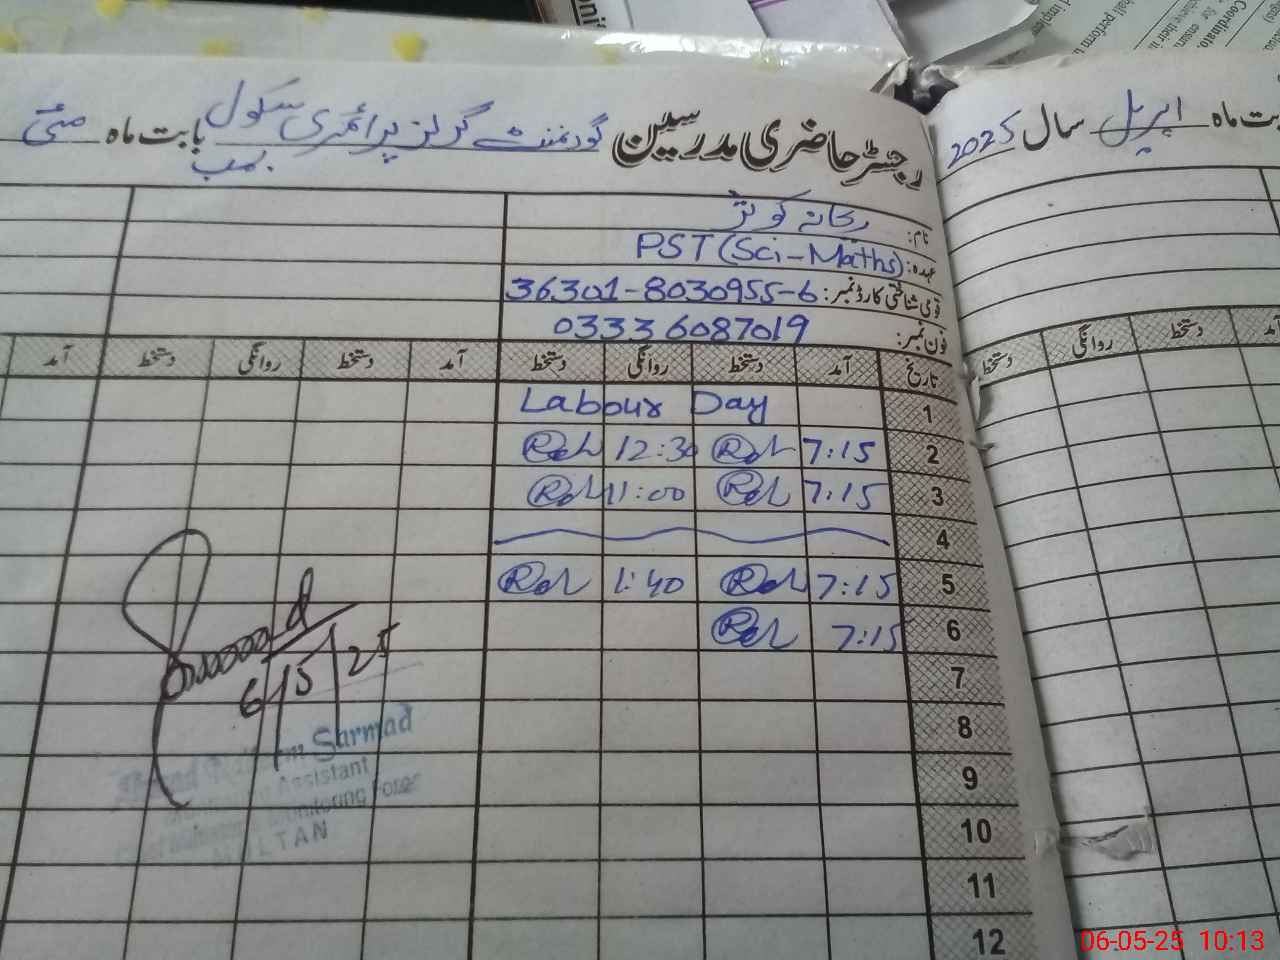 رجسٹر حاضری مدرسین گورنمنٹ گرلز پرائمری سکول بابت ماہ مئی
بمب
بابت ماہ اپریل سال 2025
نام: ریحانہ کوثر
عہدہ: PST (Sci-Maths)
قومی شناختی کارڈ نمبر: 36301-8030955-6
فون نمبر: 03336087019
تاریخ آمد دستخط روانگی دستخط آمد دستخط روانگی دستخط آمد
روانگی دستخط
1 Labour Day
2 7:15 12:30
3 7:15 11:00
4
5 7:15 1:40
6 7:15
7
8
9
10
11
12
6/5/25
Sarmad
Assistant
Monitoring Force
MULTAN
06-05-25 10:13